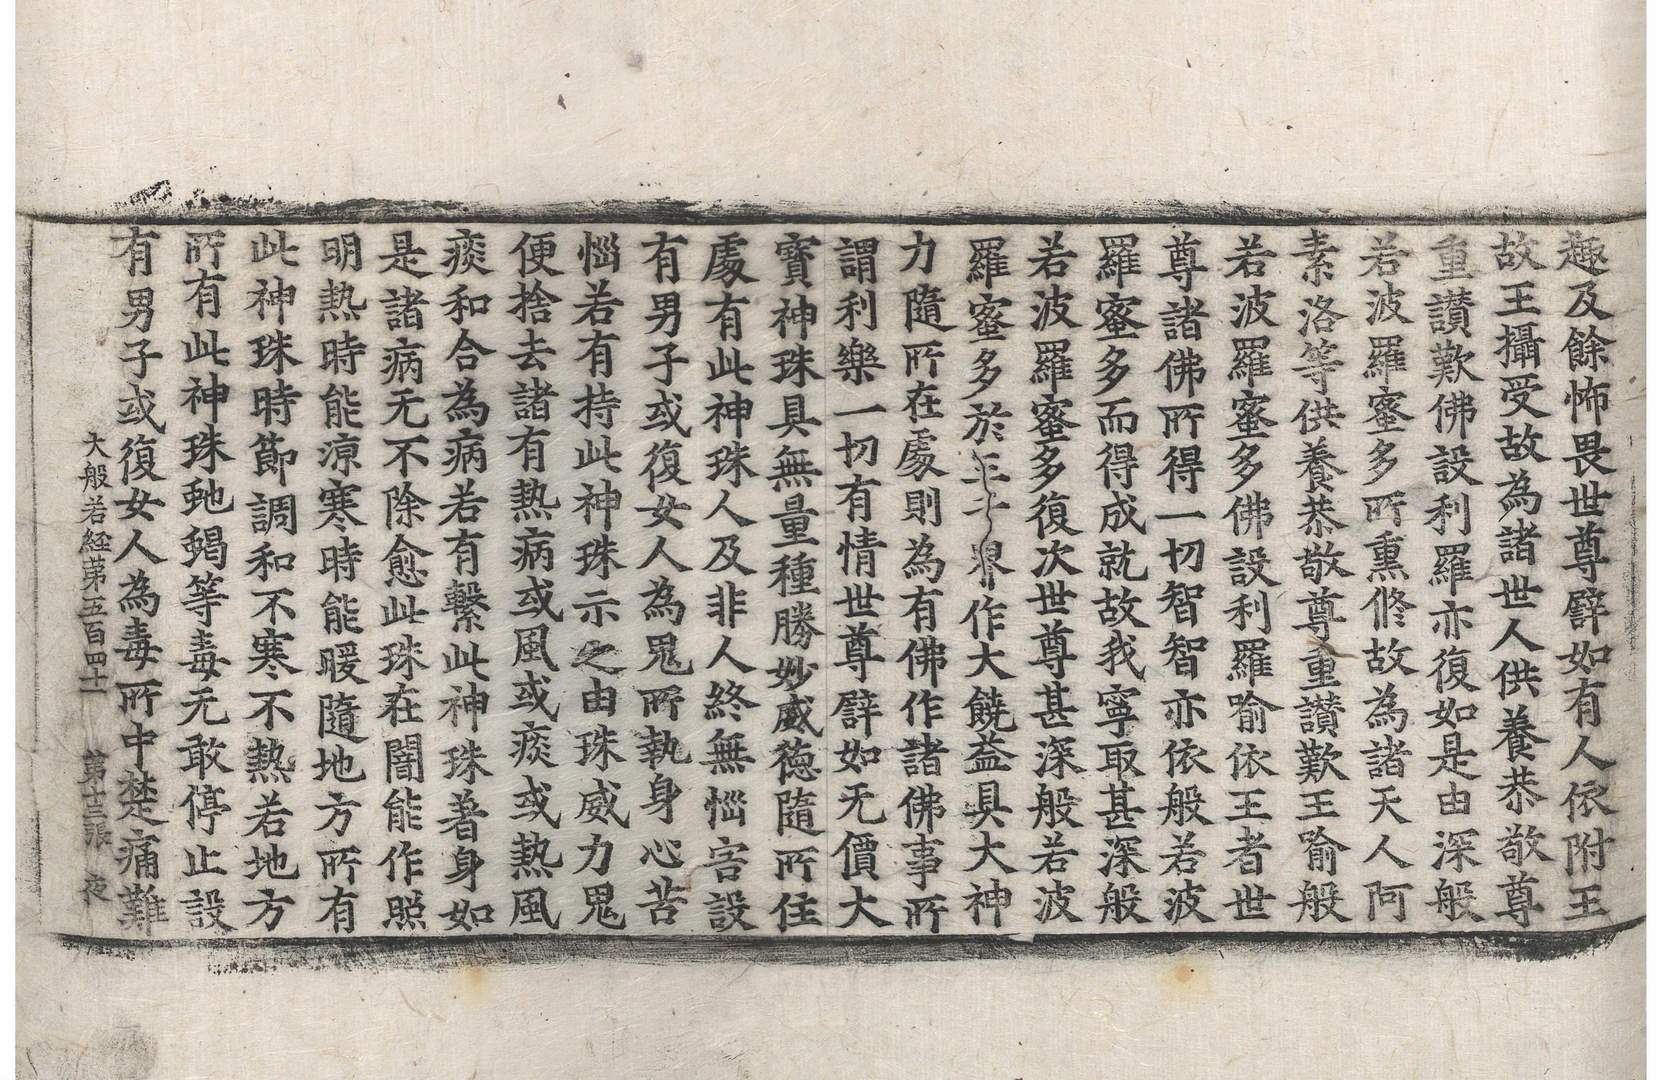 趣及餘怖畏世尊譬如有人依附王
故王攝受故為諸世人供養恭敬尊
重讃歎佛設利羅亦復如是由深般
若波羅蜜多所熏修故為諸天人阿
素洛等供養恭敬尊重讃歎王喻般
若波羅蜜多佛設利羅喻依王者世
尊諸佛所得一切智智亦依般若波
羅蜜多而得成就故我寧取甚深般
若波羅蜜多復次世尊甚深般若波
羅蜜多於三千界作大饒益具大神
力隨所在處則為有佛作諸佛事所
謂利樂一切有情世尊譬如无價大
寶神珠具無量種勝妙威德隨所住
處有此神珠人及非人終無惱害設
有男子或復女人為鬼所執身心苦
惱若有持此神珠示之由珠威力鬼
便捨去諸有熱病或風或痰或熱風
痰和合為病若有繫此神珠著身如
是諸病无不除愈此珠在闇能作照
明熱時能凉寒時能暖隨地方所有
此神珠時節調和不寒不熱若地方
所有此神珠虵蝎等毒无敢停止設
有男子或復女人為毒所中楚痛難
大般若経苐五百四十一 苐十三張 夜